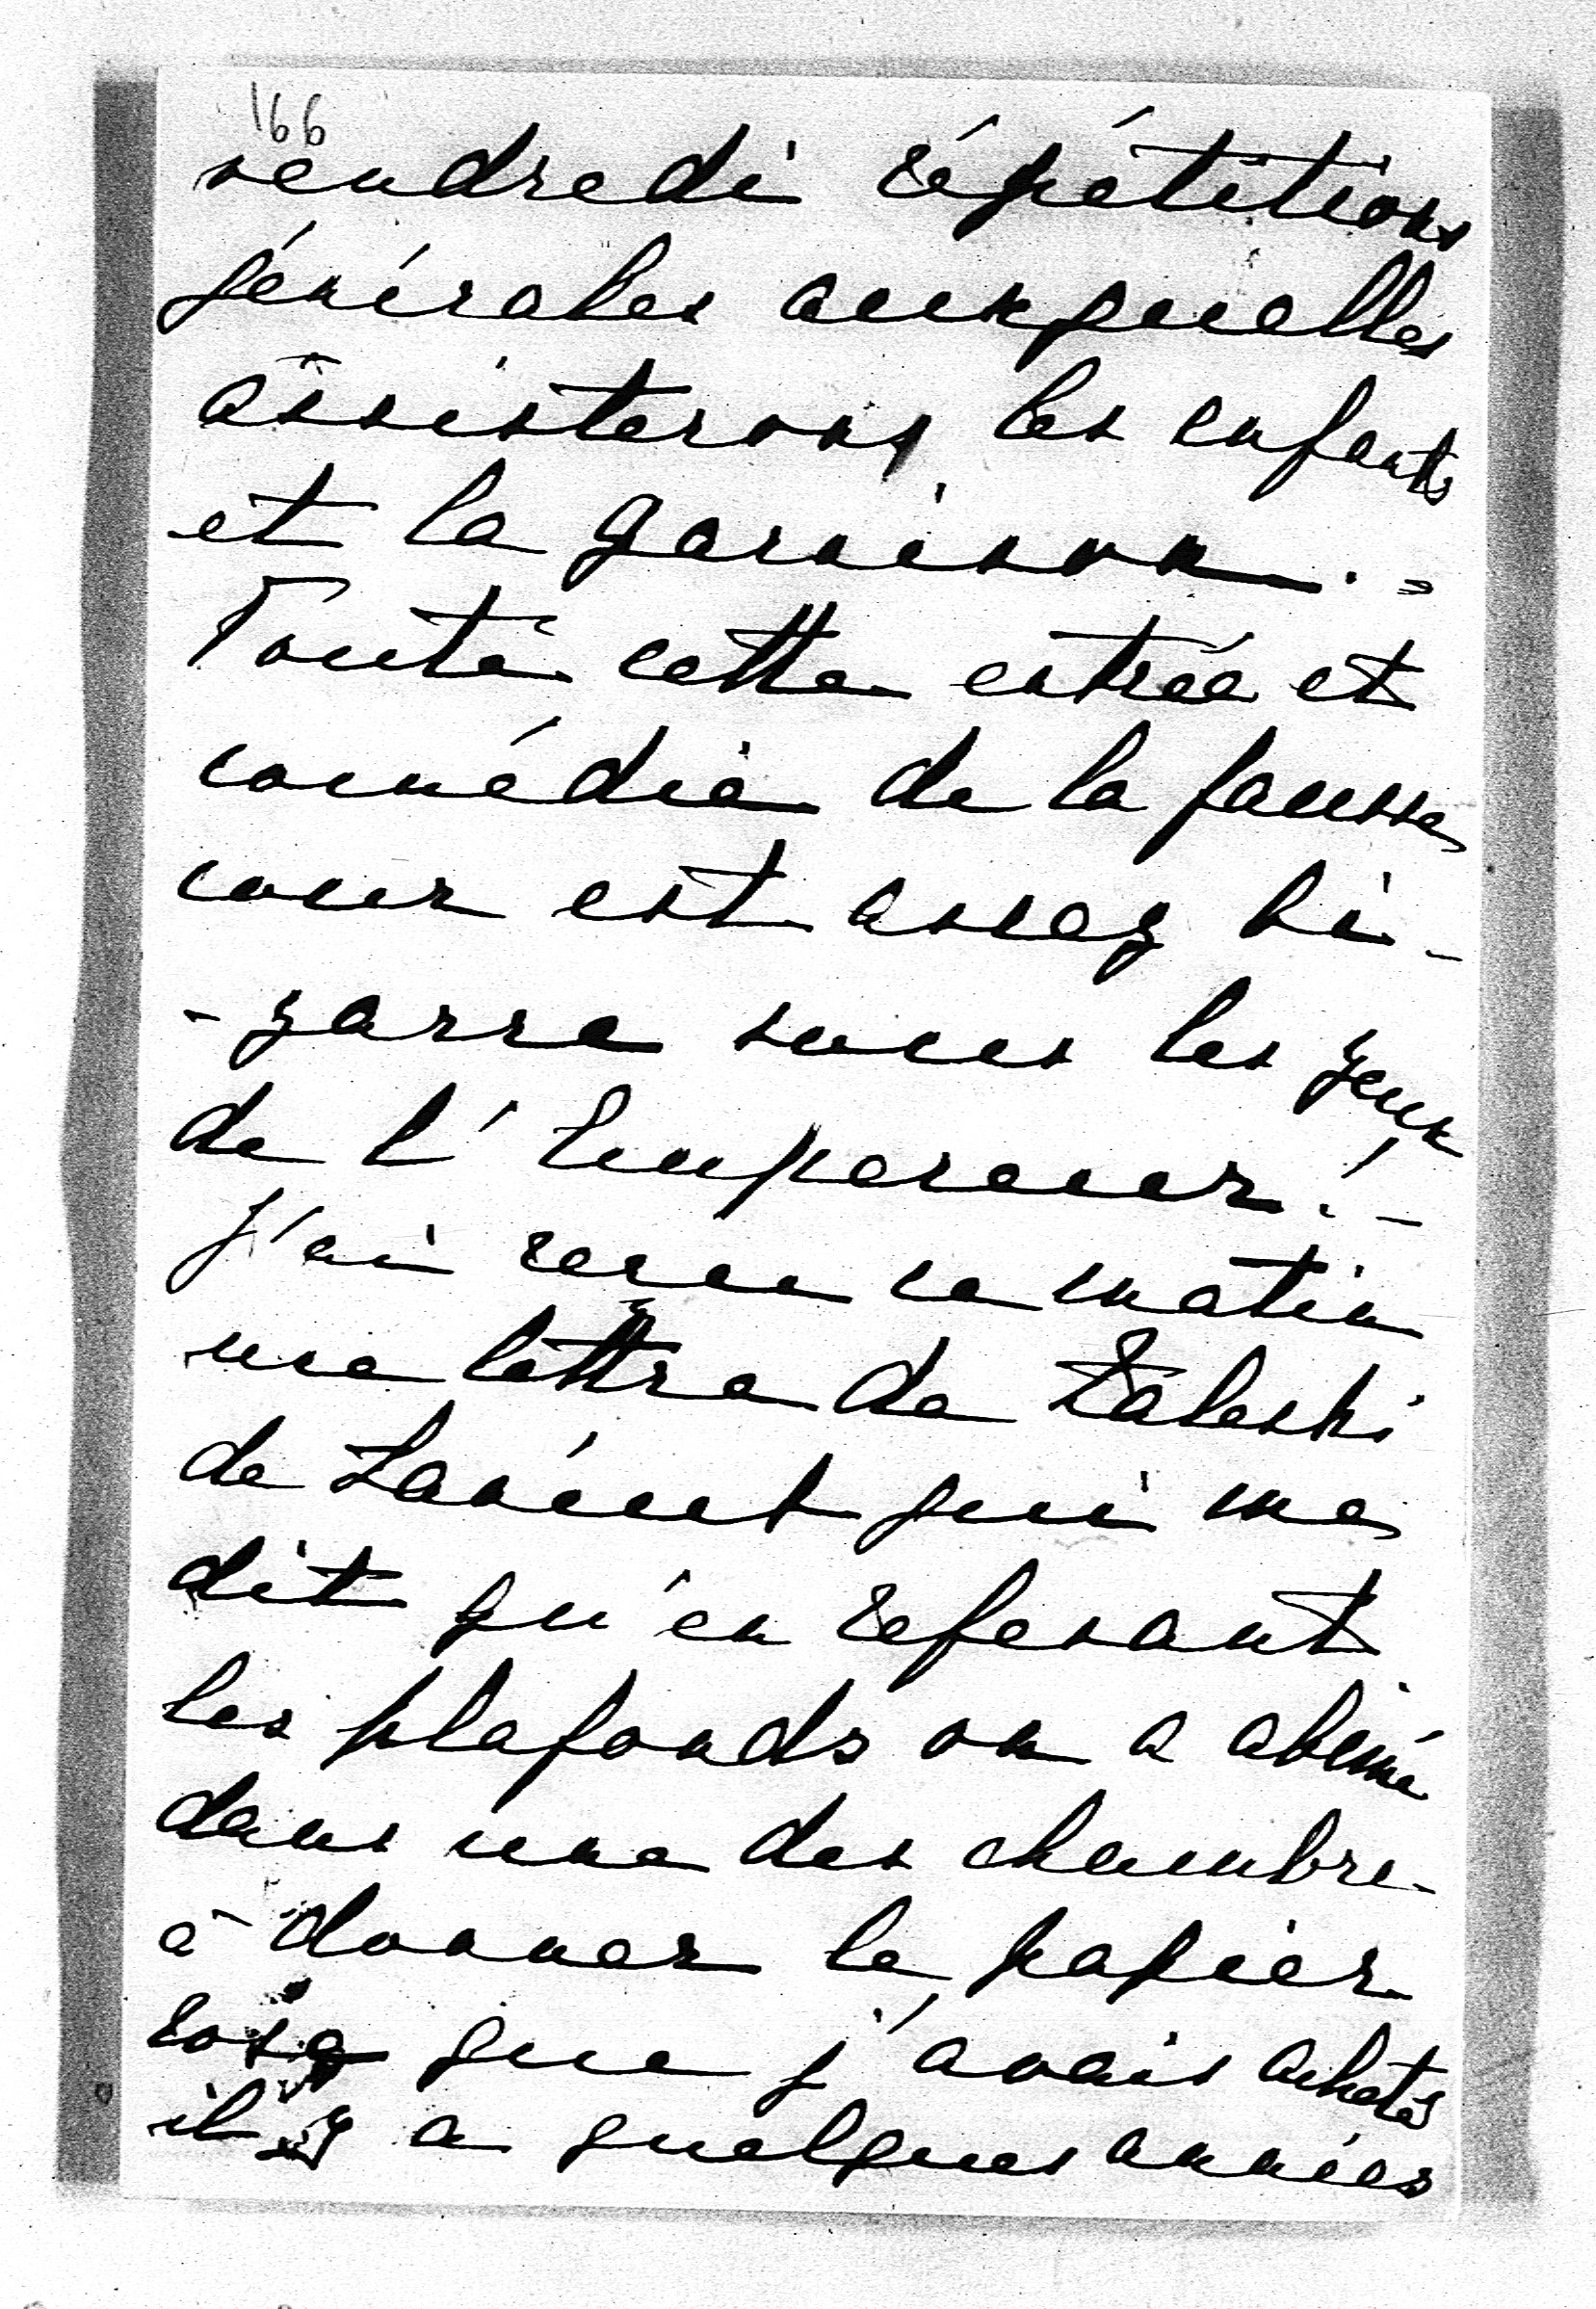 166
vendredi répétitions
générales auxquelles
assisterons les enfants
et la garnison. =
Toute cette entrée et
comédie de la fausse
cour est assez bi-
-zarre sous les yeux
de l'Empereur! -
J'ai reçu ce matin
une lettre de Zaleski
de Lanciut qui me
dit qu'en refesant
les plafonds on a abimé
dans une des chambre
à donner le papier
rose que j'avais acheté
il y a quelques années